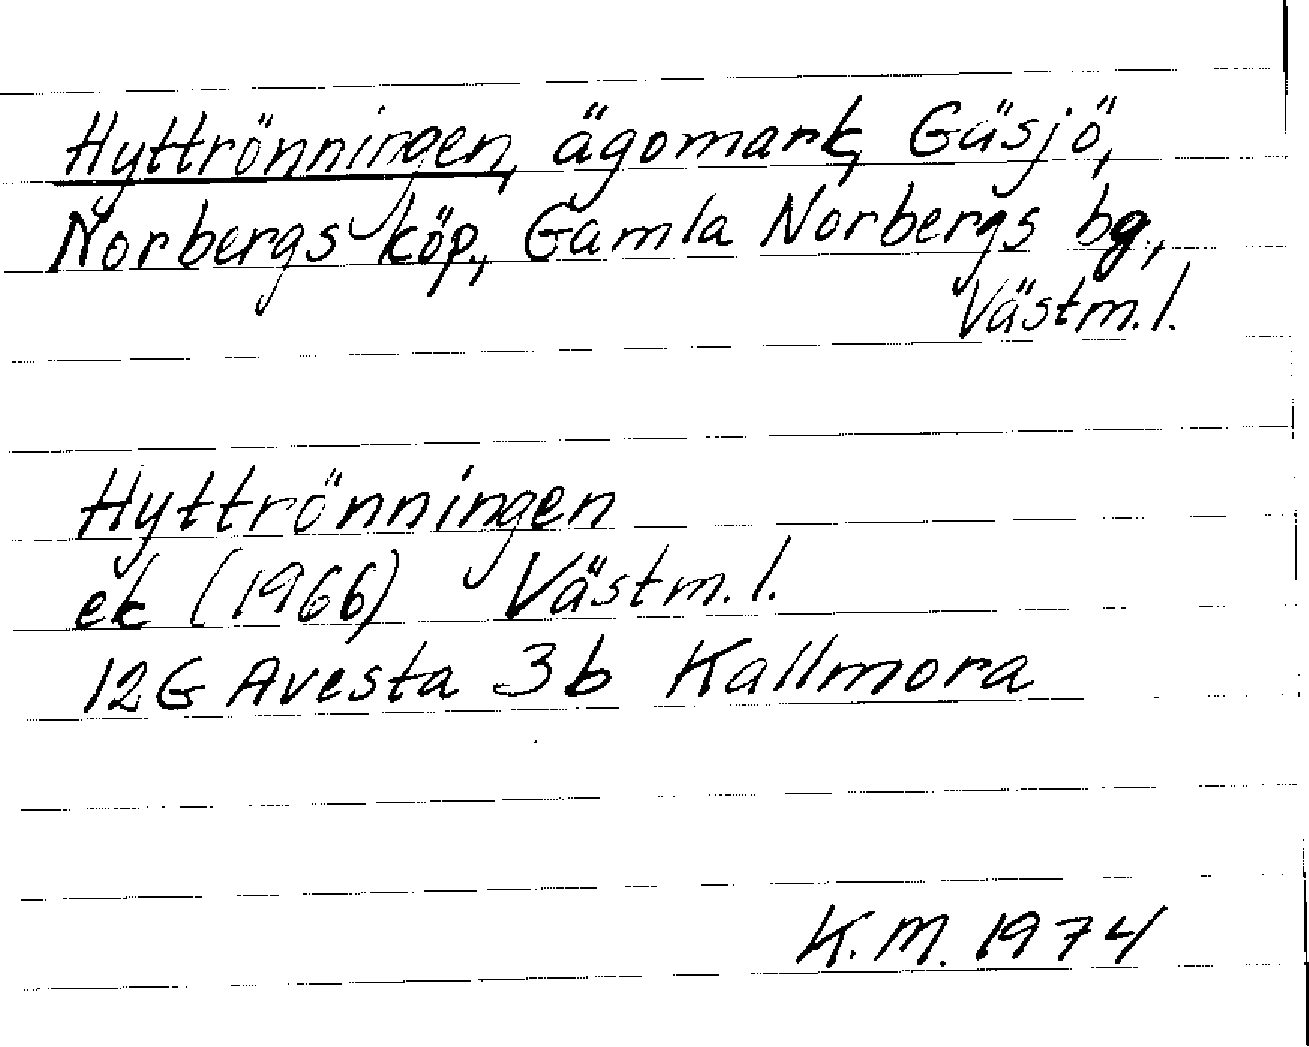 Hyttrönningen, ägomark, Gäsjö,
Norbergs köp., Gamla Norbergs bg,
Västm. l.
Hyttrönningen
ek (1966) Västm. l.
12G Avesta 3b Kallmora
K. M. 1974